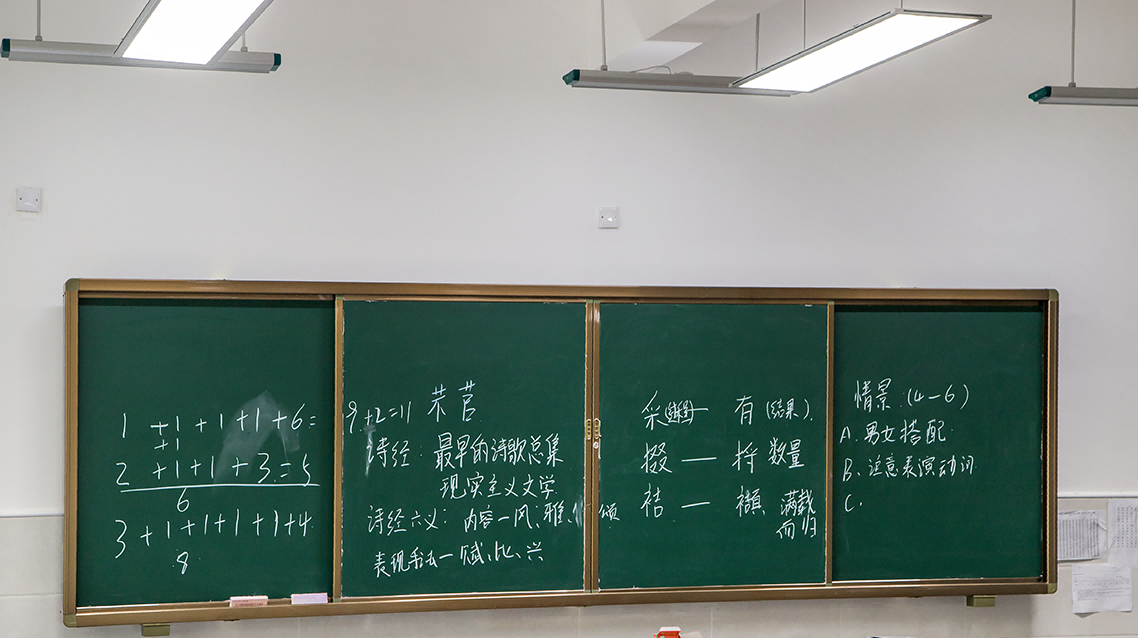 1 +1 +1 +1 +6= 9+2=11
+1
2 +1 +1 +3=5
6
3 +1 +1 +1 +1 +4
8
芣苢
诗经: 最早的诗歌总集
现实主义文学
诗经六义: 内容一风、雅、颂
表现手法一赋、比、兴
采 — 有 (结果)
掇 — 捋 数量
袺 — 襭、满载
而归
情景 (4-6)
A. 男女搭配
B. 注意表演动词
C.